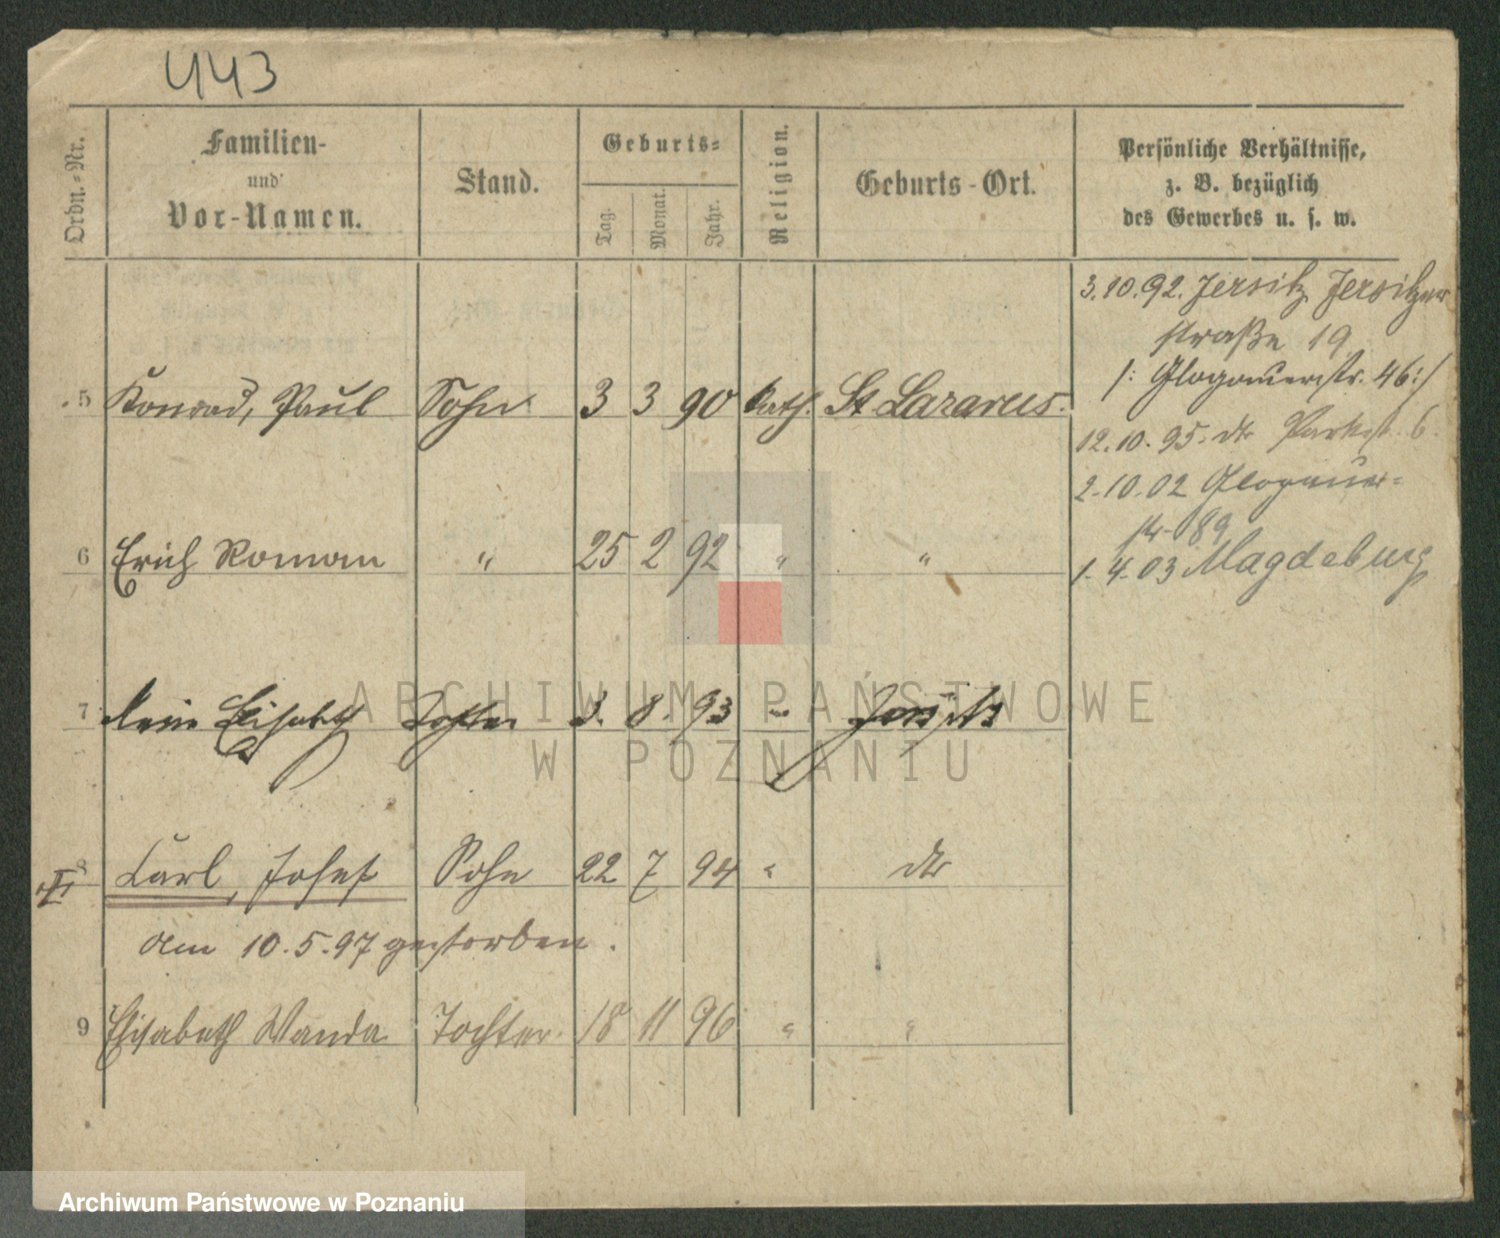 443
Ordn.-Nr.
Familien-
und
Vor-Namen.
Stand.
Geburts-
Tag.
Monat.
Jahr.
Religion.
Geburts-Ort.
Persönliche Verhältnisse,
z. B. bezüglich
des Gewerbes u. s. w.
3.10.92. Jersitz Jersitzer
straße 19
/: Glogauerstr. 46 :/
5 Konrad, Paul Sohn 3 3 90 kath. St Lazarus.
12.10.95. dto Parkstr. 6.
2.10.02 Glogauer-
str. 89
6 Erich Roman " 25 2 92 " "
1.4.03 Magdeburg
7 Elisabeth Tochter 3. 8. 93 " Jersitz
8 Carl, Josef Sohn 22 7 94 " dto
am 10.5.97 gestorben.
9 Elisabeth Wanda Tochter 18 11 96 " "
ARCHIWUM PAŃSTWOWE
W POZNANIU
Archiwum Państwowe w Poznaniu